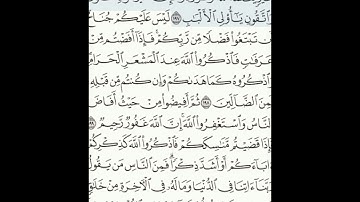 وَٱتَّقُونِ يَٰٓأُو۟لِى ٱلْأَلْبَٰبِ ١٩٧ لَيْسَ عَلَيْكُمْ جُنَاحٌ
أَن تَبْتَغُوا۟ فَضْلًا مِّن رَّبِّكُمْ فَإِذَآ أَفَضْتُم مِّنْ
عَرَفَٰتٍ فَٱذْكُرُوا۟ ٱللَّهَ عِندَ ٱلْمَشْعَرِ ٱلْحَرَامِ
وَٱذْكُرُوهُ كَمَا هَدَىٰكُمْ وَإِن كُنتُم مِّن قَبْلِهِۦ
لَمِنَ ٱلضَّآلِّينَ ١٩٨ ثُمَّ أَفِيضُوا۟ مِنْ حَيْثُ أَفَاضَ
ٱلنَّاسُ وَٱسْتَغْفِرُوا۟ ٱللَّهَ إِنَّ ٱللَّهَ غَفُورٌ رَّحِيمٌ ١٩٩
فَإِذَا قَضَيْتُم مَّنَٰسِكَكُمْ فَٱذْكُرُوا۟ ٱللَّهَ كَذِكْرِكُمْ
ءَابَآءَكُمْ أَوْ أَشَدَّ ذِكْرًا فَمِنَ ٱلنَّاسِ مَن يَقُولُ
رَبَّنَآ ءَاتِنَا فِى ٱلدُّنْيَا وَمَا لَهُۥ فِى ٱلْءَاخِرَةِ مِنْ خَلَٰقٍ